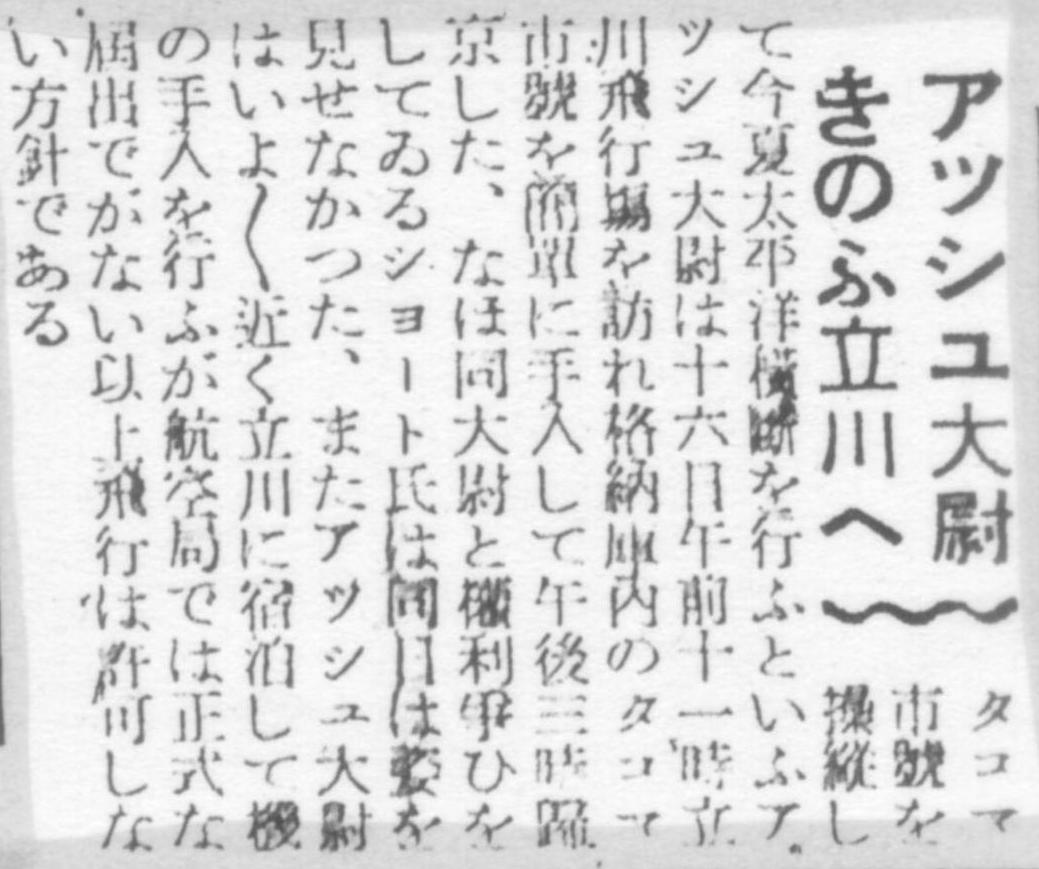 アッシュ大尉
きのふ立川へ
タコマ
市號を
操縱し
て今夏太平洋橫斷を行ふといふア
ッシュ大尉は十六日午前十一時立
川飛行場を訪れ格納庫内のタコマ
市號を簡單に手入して午後三時歸
京した、なほ同大尉と權利爭ひを
してゐるショート氏は同日は姿を
見せなかつた、またアッシュ大尉
はいよ〱近く立川に宿泊して機
の手入を行ふが航空局では正式な
届出でがない以上飛行は許可しな
い方針である